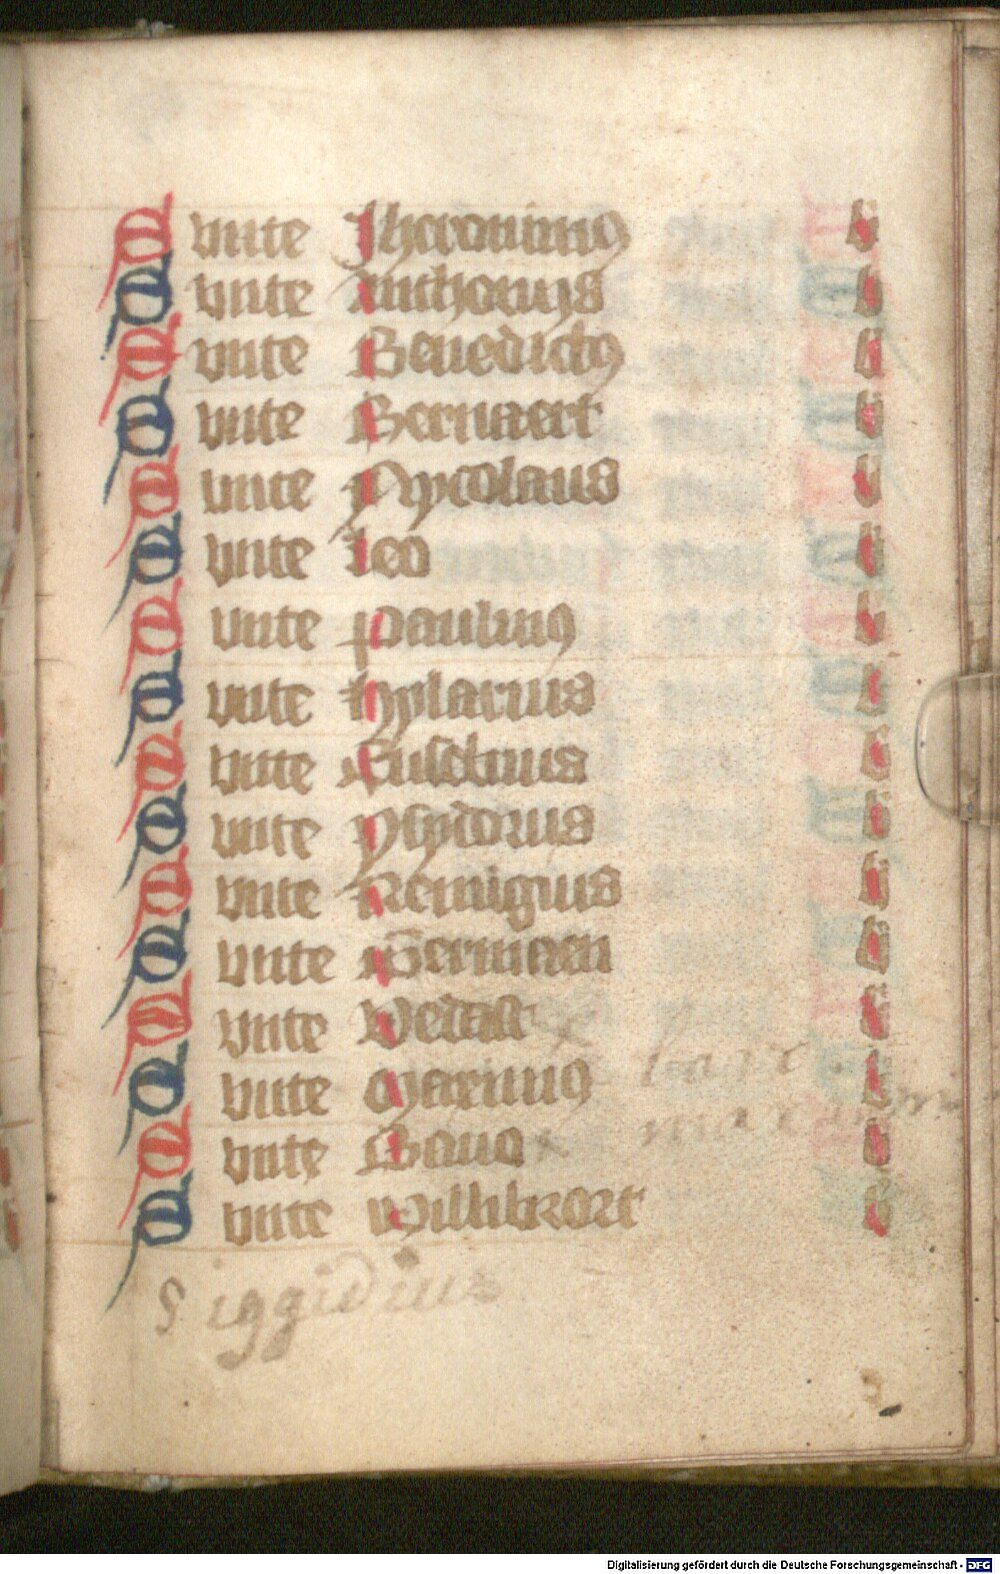 Svnte Jheronimus b
Svnte Anthonius b
Svnte Benedictus b
Svnte Bernaert b
Svnte Nycolaus b
Svnte Leo b
Svnte Paulinus b
Svnte Hylarius b
Svnte Eusebius b
Svnte Ysydorus b
Svnte Remigius b
Svnte Germaen b
Svnte Vedast b
Svnte Marinus b
Svnte Bavo b
Svnte Willibrort b
S iggidius
Digitalisierung gefördert durch die Deutsche Forschungsgemeinschaft - DFG